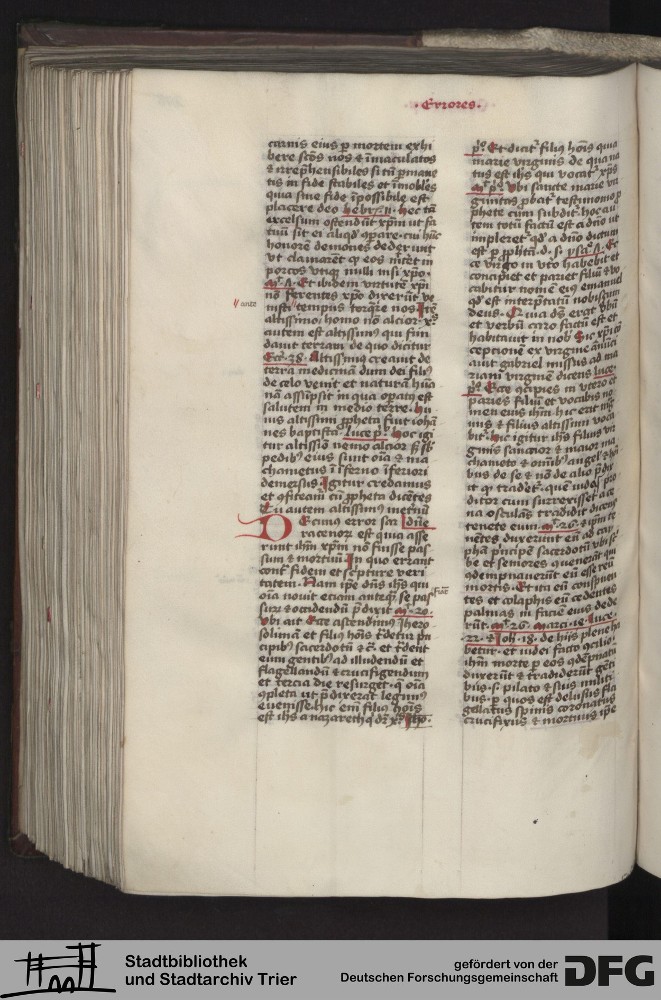 · Errores ·
carnis eius p̱ mortem exhi
bere scōs nos ⁊ īmaculatos
⁊ irrep̄hensibiles si tn̄ p̱mane
tis in fide stabiles ⁊ īmobiles
quia sine fide īpossibile est
placere deo hebr. 11. hec tā
excelsum ostendūt xp̄m ut fa
tuū sit ei aliqd' ꝯparare. cui hūc
honorē demones dederunt
vt clamarēt ꝙ eos mittet in
porcos vtiqꝫ nulli nisi xp̄o.
Et ibidem virtutē xp̄i
nō ferentes xp̄o dixerūt ve
nisti tempus torqre nos Itē
ante
altissimo homo nō alcior. xp̄s
autem est altissimus qui fun
dauit terram de quo dicitur
Altissimus creauit de
terra medicinā dum dei filiꝰ
de celo venit et naturā huā
nā assūpsit in qua op̱atꝰ est
salutem in medio terre. hu
ius altissimi p̄pheta fuit iohā
nes baptista. luce pº. hoc igi
tur altissio nemo alcior s; sb̄
pedibꝰ eius sunt oīa ⁊ ma
chametus ī īferno īferiori
demersus. Igitur credamus
et ꝯfiteam̄ cū p̄pheta dicētes
Tu autem altissimus in etnū
Decimus error sar dn̄e
racenoꝝ est quia asse
runt ih̄m xp̄m nō fuisse pas
sum ⁊ mortuū. In quo errant
cont̄ fidem et sc̄pture veri
tatem. Nam ip̄e dūs ih̄s qui
oīa nouit eciam anteqꝫ se pas
sus ⁊ occidendū p̄dixit mͭ. 20.
Vbi ait Ecce ascendimus Ihero
solimā et filiꝰ hoīs t̄detur p̄n
cipibꝰ sacerdotū ⁊c̄. et t̄dent
eum gentibꝰ ad illudendū et
flagellandū ⁊ crucifigendum
et tercia die resurget. q̄ oīa
ꝯpleta ut p̄dixerat legimus
euenisse. hic em̄ filius hoīs
est ih̄s a nazareth qͥ dr̄ xp̄s Jho.
pº. Et dicit̄ filiꝰ hoīs quia
marie virginis de qua na
tus est ih̄s qui vocat̄ xp̄us
mͭ pº. Vbi sancte marie vir
ginitas p̄bat testimonio p̄
phete cum subdit̄. hoc au
tem totū factū est a dn̄o ut
impleret̄ qd' a dn̄o dictum
est p̱ p̄phetā. d. s. ysa. Ec
ce virgo in vto habebit et
concipiet et pariet filiū ⁊ vo
cabitur nomen eiꝰ emanuel
qd' est interp̄tatū nobiscum
deus. Quia dꝰ erat vbū
et verbū caro factū est et
habitauit in nob̄. Sic xp̄i cō
cepcionē ex virgine annūci
auit gabriel missus ad ma
riam virginē dicens luce.
pº. Ecce ꝯcipies in vtero et
paries filiū et vocabis no
men eius ih̄m. hic erit mg̅
nus ⁊ filius altissimi voca
bit̄. hic igitur ih̄s filius vir
ginis sanctior ⁊ maior ma
chameto ⁊ omībꝰ angelꝰ ⁊ hōi
bus de se ⁊ nō de alio p̄dix
it qͥ tradet̄. quē iudas pro
ditor cum surrexisset a ce
na osculās tradidit dicens
tenete eum. mͭ. 26. ⁊ ip̄m te
nētes duxerunt eū ad cay
phā p̄ncipē sacerdotū vbi sc̄
be et seniores querēbāt qͥ
ꝯdempnauerūt eū esse reū
mortis. Et ita eū conspuen
tes et colaphis eū cedentes
palmas in faciē eius dede
rūt. mͭ. 26. marci. 14. Luce.
22. ⁊ Joh̄. 18. de hijs plene ha
betur. et iudei facto ꝯcilio
ih̄m morte p̱ eos ꝯdēpnatū
duxerūt ⁊ tradiderūt gēti
bus. s. pilato ⁊ suis militi
bus. p̱ quos est delusus fla
gellatus spinis coronatus
crucifixus ⁊ mortuus ip̄e
Stadtbibliothek
und Stadtarchiv Trier
gefördert von der
Deutschen Forschungsgemeinschaft
DFG